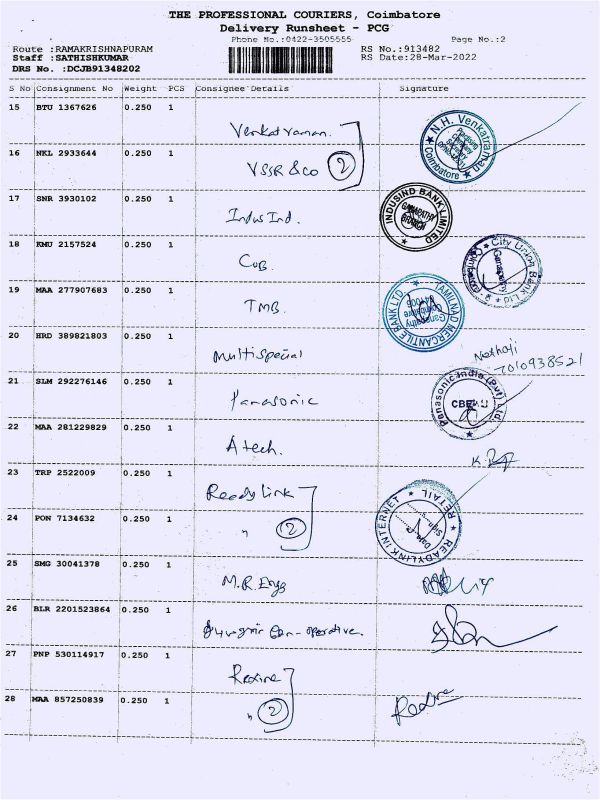 THE PROFESSIONAL COURIERS, Coimbatore
Delivery Runsheet - PCG
Phone No.:0422-3505555 Page No.:2
Route :RAMAKRISHNAPURAM RS No.:913482
Staff :SATHISHKUMAR RS Date:28-Mar-2022
DRS No. :DCJB91348202
S No Consignment No Weight PCS Consignee Details Signature
15 BTU 1367626 0.250 1
Venkatraman. N.H. Venkatraman Coimbatore
16 NKL 2933644 0.250 1
VSSR & Co 2
17 SNR 3930102 0.250 1
IndusInd. INDUSIND BANK LIMITED GANAPATHY BRANCH
18 KMU 2157524 0.250 1
CUB City Union Bank Ltd Ganapathy
19 MAA 277907683 0.250 1
TMB. TAMILNAD MERCANTILE BANK LTD Ganapathy Coimbatore 641006
20 HRD 389821803 0.250 1
Multispecial Nethaji
7010938521
21 SLM 292276146 0.250 1
Panasonic Panasonic India (Pvt) Ltd. CBE
22 MAA 281229829 0.250 1
A tech.
23 TRP 2522009 0.250 1
Readylink READYLINK INTERNET RETAIL Date Sign
24 PON 7134632 0.250 1
" 2
25 SMG 30041378 0.250 1
M.R. Engg
26 BLR 2201523864 0.250 1
Co-operative.
27 PNP 530114917 0.250 1
Rexine
28 MAA 857250839 0.250 1
" 2